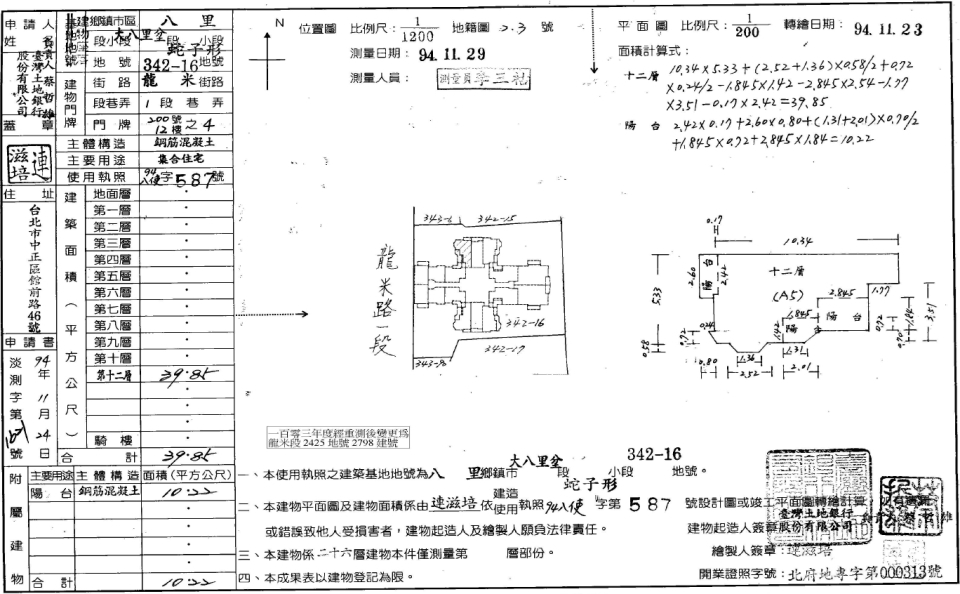 申請人姓名
負責人 蔡哲雄
臺灣土地銀行股份有限公司
蓋章
連滋培
住址
台北市中正區館前路46號
申請書
淡測字第 號
94年11月24日
基地座落
建物
鄉鎮市區 八里
段小段 大八里坌 段 蛇子形 小段
地號 342-16 地號
建物門牌
街路 龍米 街路
段巷弄 1段 巷 弄
門牌 200號12樓之4
主體構造 鋼筋混凝土
主要用途 集合住宅
使用執照 94八使字587號
建築面積(平方公尺)
地面層
第一層
第二層
第三層
第四層
第五層
第六層
第七層
第八層
第九層
第十層
第十二層 39.85
騎樓
合計 39.85
附屬建物
主要用途 主體構造 面積(平方公尺)
陽台 鋼筋混凝土 10.22
合計 10.22
N
位置圖 比例尺:1/1200 地籍圖 2.3 號
測量日期:94.11.29
測量人員: 測量員李三祝
平面圖 比例尺:1/200 轉繪日期:94.11.23
面積計算式:
十二層 10.34×5.33+(2.52+1.36)×0.58/2+0.72
×0.24/2-1.845×1.42-2.845×2.54-1.77
×3.51-0.17×2.42=39.85
陽台 2.42×0.17+2.60×0.80+(1.31+2.01)×0.70/2
+1.845×0.72+2.845×1.84=10.22
龍米路一段
343-6
342-15
342-16
342-17
0.17
10.34
5.33
2.60
陽台
2.42
十二層
(A5)
2.845
1.77
1.845
陽台
陽台
0.72
1.84
3.51
0.70
0.72
0.58
0.24
1.42
1.36
1.31
0.80
2.52
2.01
一百零三年度經重測後變更為
龍米段 2425 地號 2798 建號
一、本使用執照之建築基地地號為八里鄉鎮市 大八里坌 段 蛇子形 小段 342-16 地號。
二、本建物平面圖及建物面積係由連滋培依 建造使用 執照94八使字第587號設計圖或竣工平面圖轉繪計算,如有遺漏
或錯誤致他人受損害者,建物起造人及繪製人願負法律責任。
三、本建物係二十六層建物本件僅測量第 層部份。
四、本成果表以建物登記為限。
建物起造人簽章
臺灣土地銀行股份有限公司
繪製人簽章:連滋培
開業證照字號:北府地專字第000313號